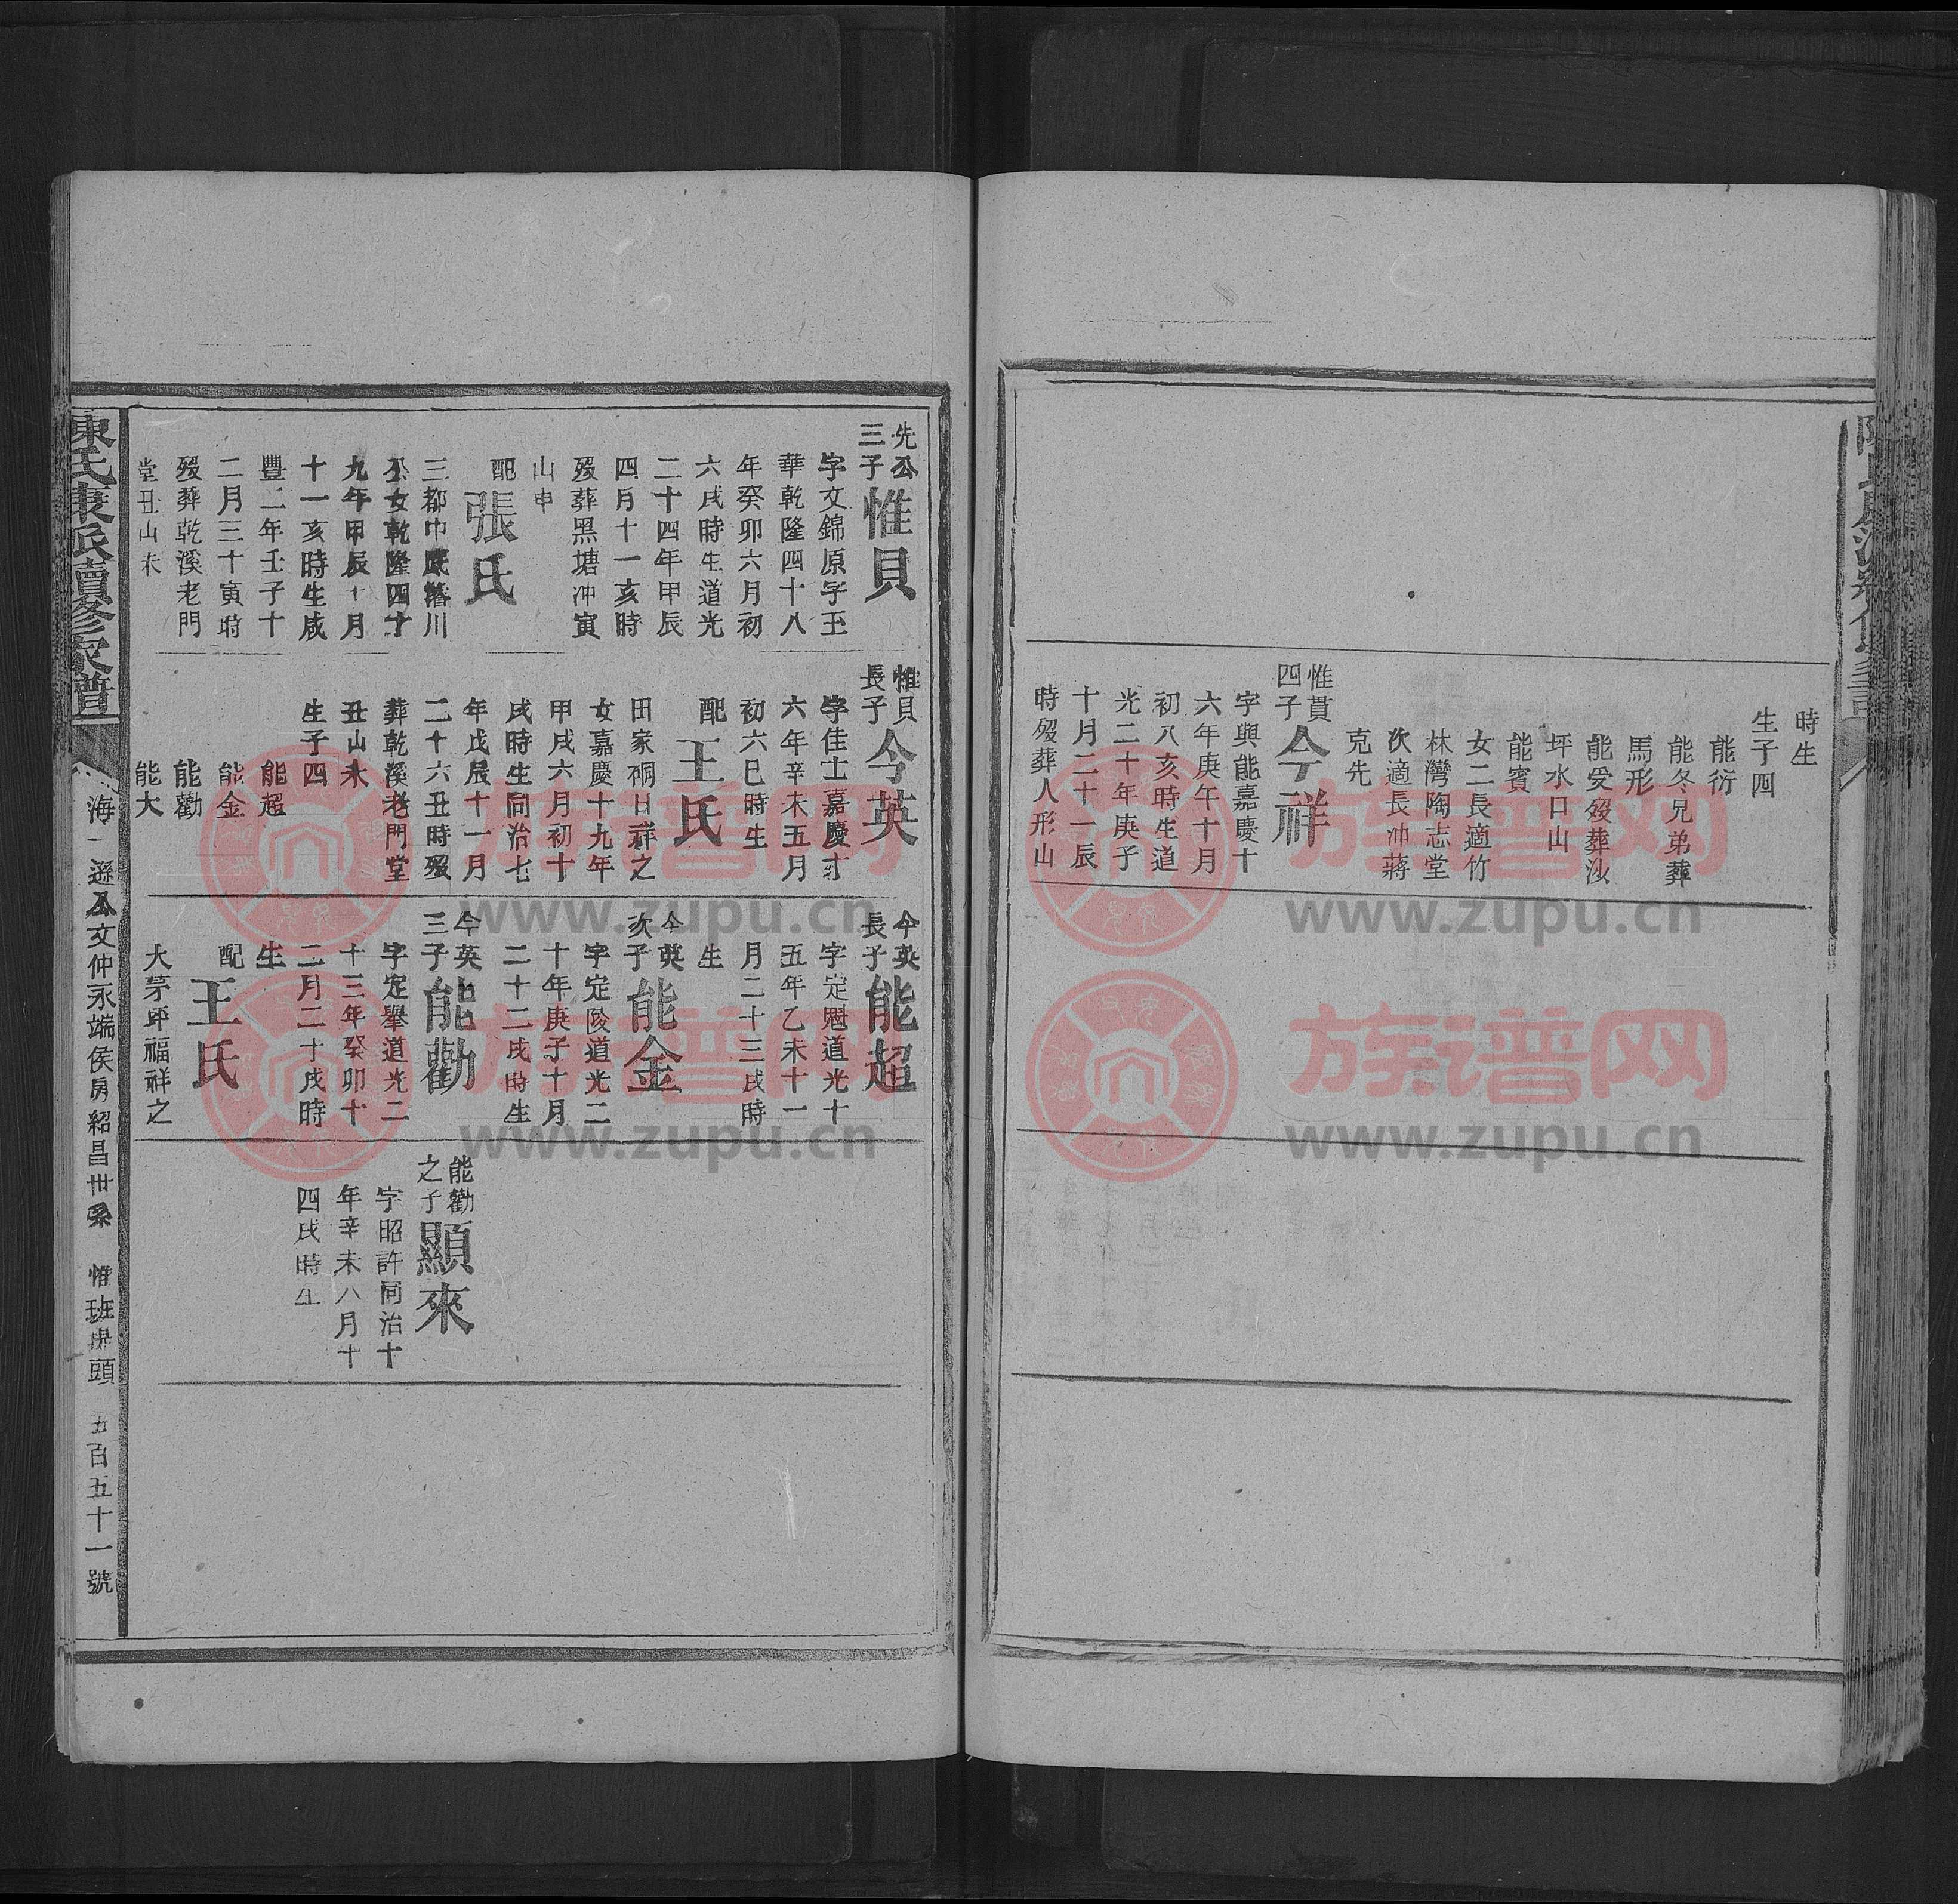 時生
生子四
能衍
能冬兄弟葬
馬形
能爱歿葬沙
坪水口山
能賓
女二長適竹
林灣陶志堂
次適長冲蔣
克先
惟貫
四子
今祥
字與能嘉慶十
六年庚午十月
初八亥時生道
光二十年庚子
十月二十一辰
時歿葬人形山
先公
三子
惟貝
字文錦原字玉
華乾隆四十八
年癸卯六月初
六戌時生道光
二十四年甲辰
四月十一亥時
歿葬黑塘冲寅
山申
配
張氏
三都中
川
公女乾隆四十
九年甲辰十月
十一亥時生咸
豐二年壬子十
二月三十寅時
歿葬乾溪老門
堂丑山未
惟貝
長子
今英
字佳士嘉慶十
六年辛未五月
初六巳時生
配
王氏
田家硐日祥之
女嘉慶十九年
甲戌六月初十
戌時生同治七
年戊辰十一月
二十六丑時歿
葬乾溪老門堂
丑山未
生子四
能超
能金
能勸
能大
今英
長子
能超
字定魁道光十
五年乙未十一
月二十三戌時
生
今英
次子
能金
字定陵道光二
十年庚子十月
二十二戌時生
今英
三子
能勸
字定舉道光二
十三年癸卯十
二月二十戌時
生
配
王氏
大茅坪福祥之
能勸
之子
顯來
字昭許同治十
年辛未八月十
四戌時生
陳氏東派續修家譜
海一遜公文仲永端侯房紹昌世系 惟班虎頭 五百五十一號
族谱网
www.zupu.cn
族谱网
www.zupu.cn
族谱网
www.zupu.cn
族谱网
www.zupu.cn